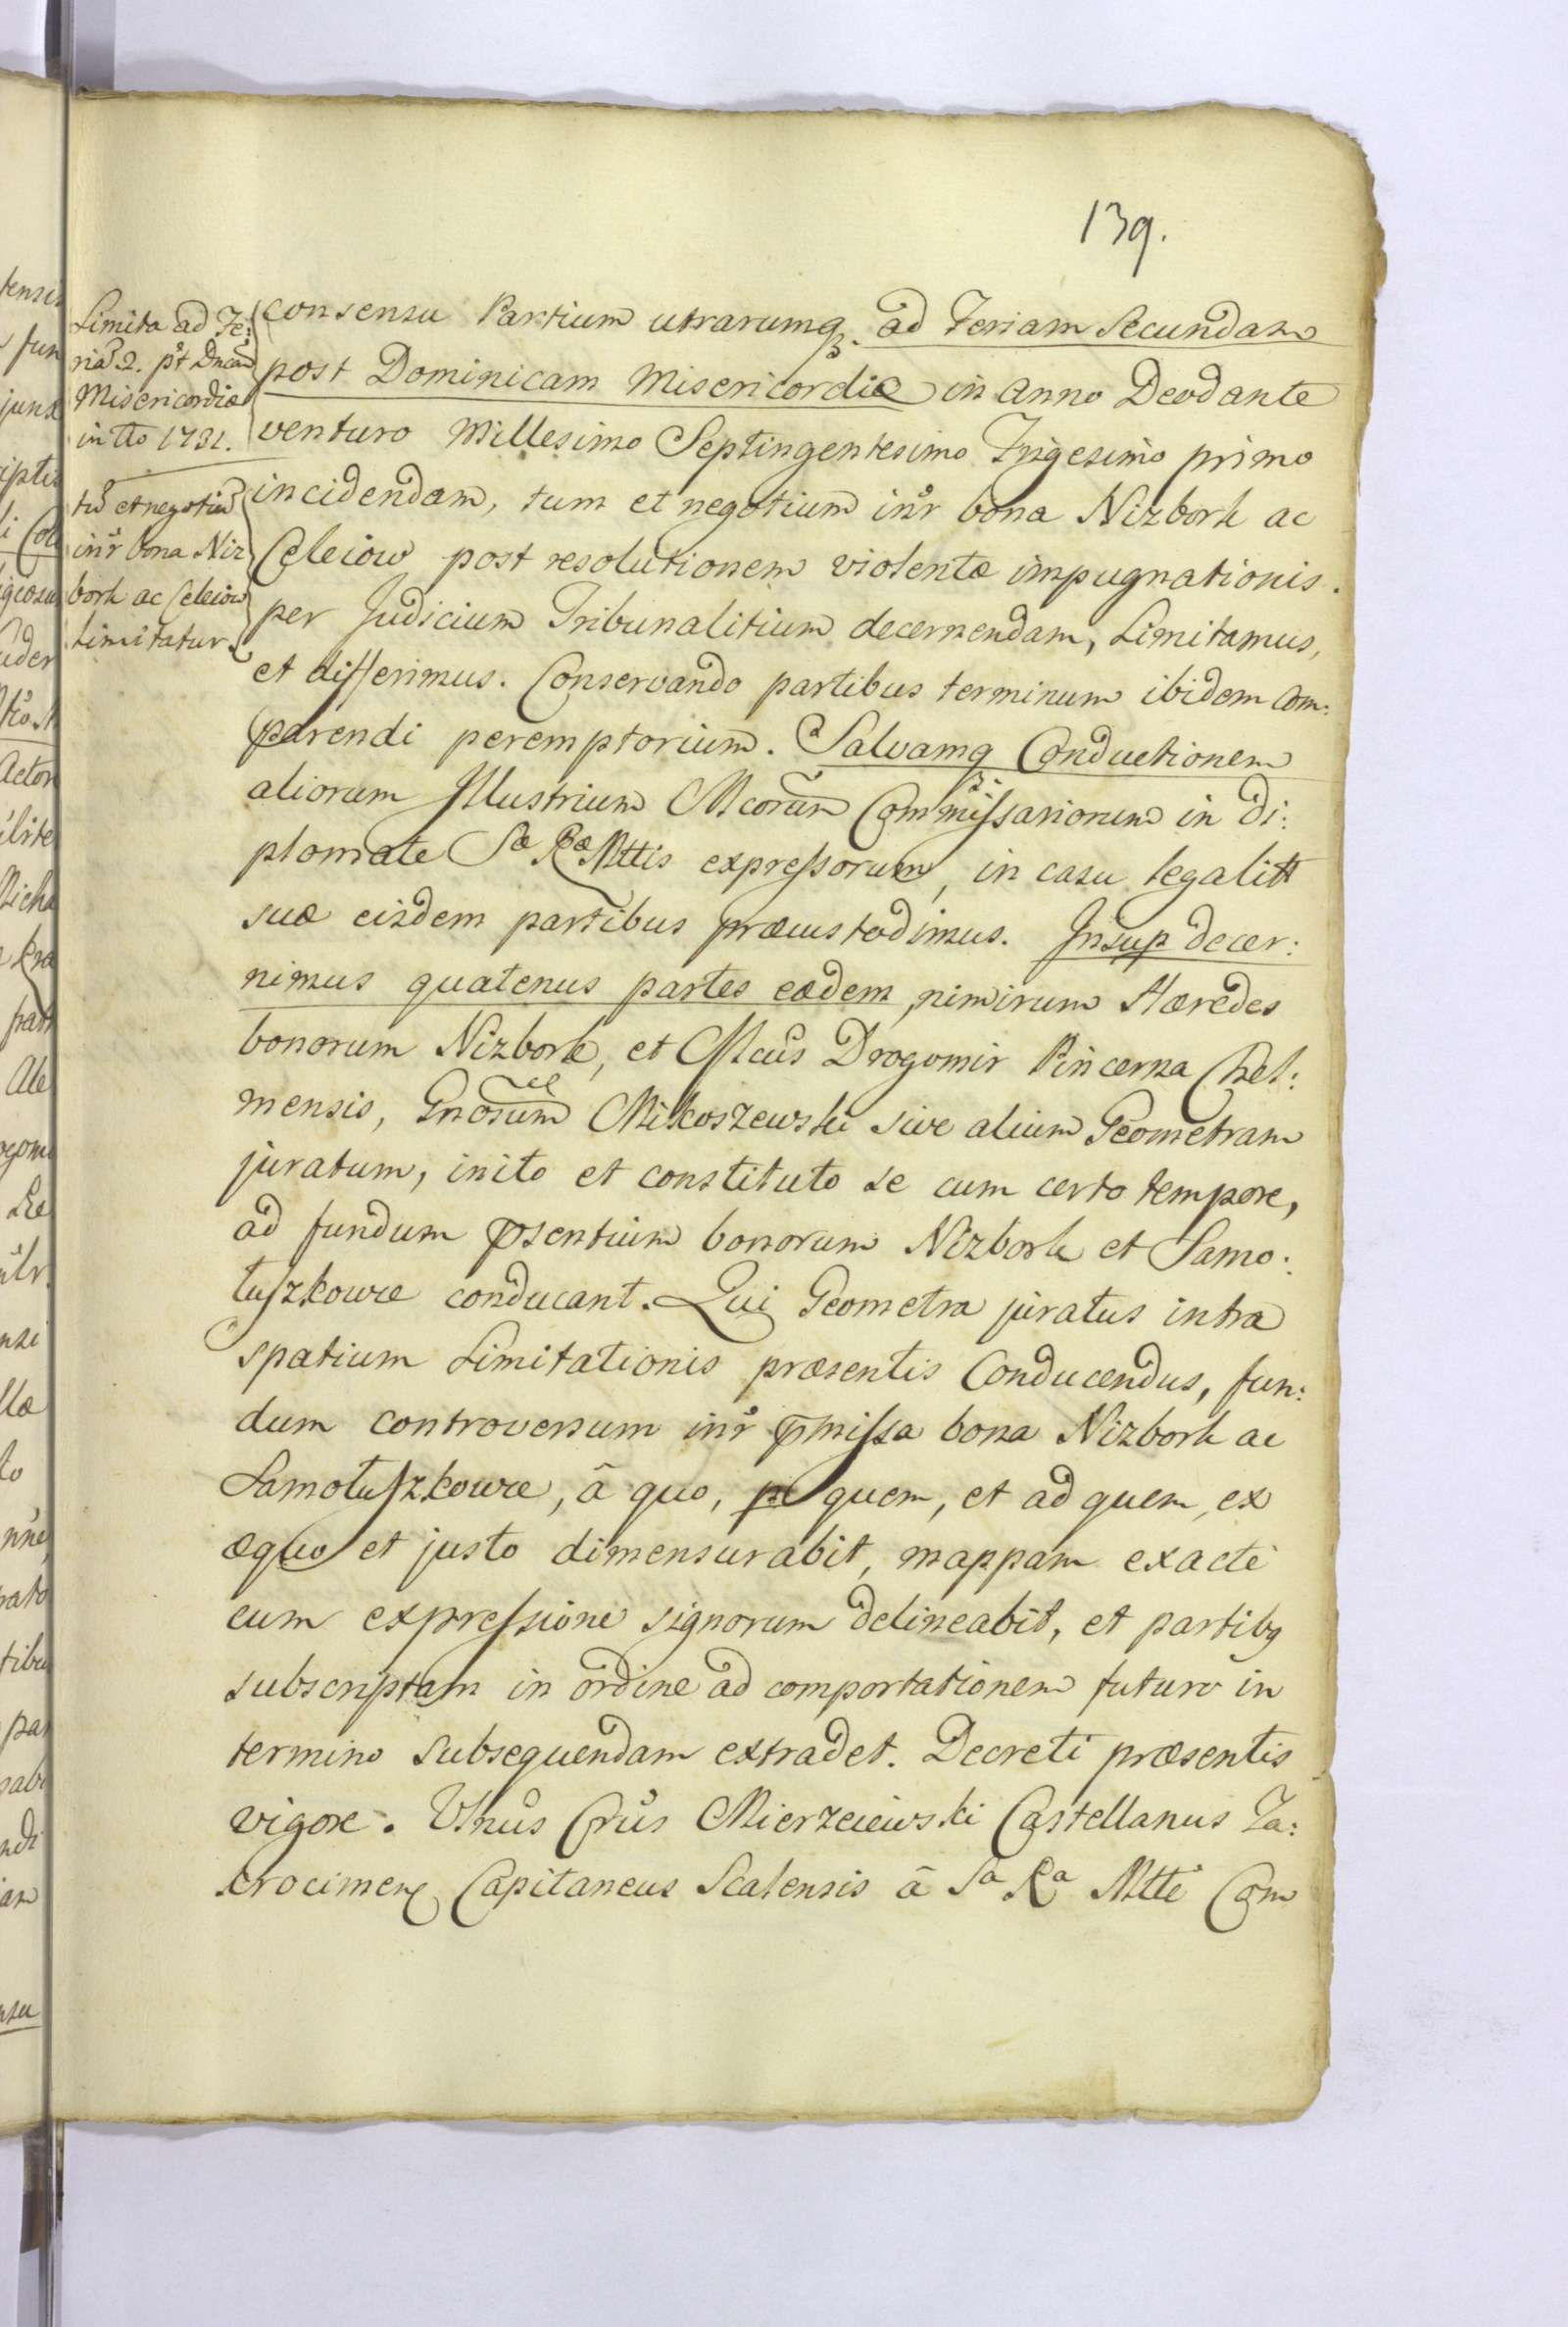 139.
Limita ad Fe:
ria 2. pt Dncam
Misericordiæ
in Ao 1731.
tu et negotiu
intr bona Niz
bork ac Celeiow
Limitatur.
consensu Partium utrarumq. ad Feriam Secundam
post Dominicam Misericordiæ in Anno Deodante
venturo Millesimo Septingentesimo Trigesimo primo
incidendam, tum et negotium intr bona Nizbork ac
Celeiow post resolutionem violentæ impugnationis.
per Judicium Tribunalitium decernendam, Limitamus,
et differimus. Conservando partibus terminum ibidem Com:
parendi peremptorium. Salvamq Conductionem
aliorum Illustrium Mcorum Commissariorum in Di:
plomate Sæ Ræ Mttis expressorum, in casu legalitt
suæ eisdem partibus præcustodimus. Insup decer:
nimus quatenus partes eædem, nimirum Hæredes
bonorum Nizbork, et Mcus Drogomir Pincerna Chel:
mensis, Gnosum Mikoszewski sive alium Geometram
juratum, inito et constituto se cum certo tempore,
ad fundum psentium bonorum Nizbork et Samo:
łuszkowce conducant. Qui Geometra juratus intra
spatium Limitationis præsentis Conducendus, fun:
dum controversum intr pmissa bona Nizbork ac
Samołuszkowce, â quo, p quem, et ad quem, ex
æquo et justo dimensurabit, mappam exacte
cum expressione signorum delineabit, et partibq
subscriptam in ordine ad comportationem futuro in
termino subsequendam extradet. Decreti præsentis
vigore. Unus Mierzeiewski Castellanus Za:
krocimen Capitaneus Scalensis â Sa Ra Mtte Com